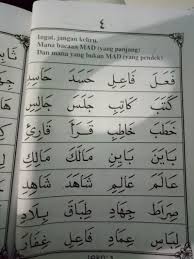 ٤
Ingat, jangan keliru.
Mana bacaan MAD (yang panjang)
Dan mana yang bukan MAD (yang pendek)
فَعَلَ فَاعِلٌ حَسَدَ حَاسِدٌ
كَتَبَ كَاتِبٌ جَلَسَ جَالِسٌ
خَطَبَ خَاطِبٌ قَرَأَ قَارِئٌ
مَالِكَ مَالِكٌ
عَالَمَ عَالِمٌ شَاهَدَ شَاهِدٌ
صِرَاطَ جِهَادٍ طِبَاقَ بِلَادٍ
لِبَاسَ عِمَادِ فَاعِلِ